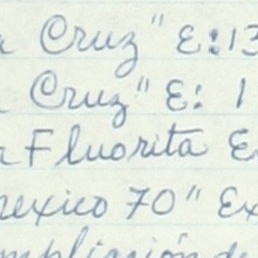 a Cruz" E:13
a Cruz" E: 1
a Fluorita E
mexico 70" Ex
mpliación de